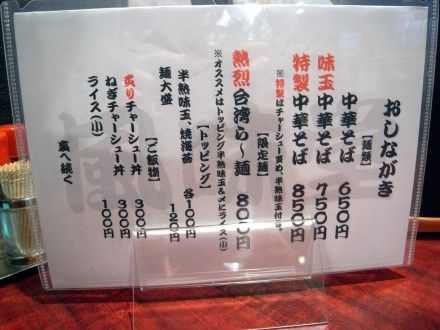 おしながき
【麺類】
中華そば 650円
味玉中華そば 750円
特製中華そば 850円
※特製はチャーシュー多め、半熟味玉付き。
【限定麺】
熱烈台湾らーめん 800円
※オススメはトッピング半熟味玉&〆にライス(小)
【トッピング】
半熟味玉、焼海苔 各100円
麺大盛 120円
【ご飯物】
炙りチャーシュー丼 300円
ねぎチャーシュー丼 300円
ライス(小) 100円
裏へ続く